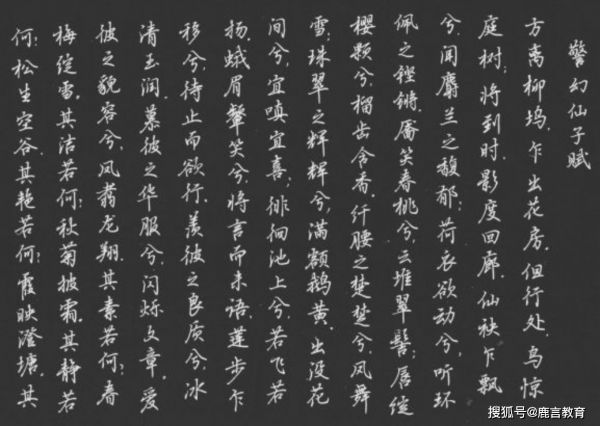 警幻仙子赋
方离柳坞，乍出花房。但行处，鸟惊
庭树；将到时，影度回廊。仙袂乍飘
兮，闻麝兰之馥郁；荷衣欲动兮，听环
佩之铿锵。靥笑春桃兮，云堆翠髻；唇绽
樱颗兮，榴齿含香。纤腰之楚楚兮，风舞
雪；珠翠之辉辉兮，满额鹅黄。出没花
间兮，宜嗔宜喜；徘徊池上兮，若飞若
扬。蛾眉颦笑兮，将言而未语；莲步乍
移兮，待止而欲行。羡彼之良质兮，冰
清玉润。慕彼之华服兮，闪烁文章。爱
彼之貌容兮，凤翥龙翔。其素若何：春
梅绽雪。其洁若何：秋菊披霜。其静若
何：松生空谷。其艳若何：霞映澄塘。其
搜狐号@鹿言教育